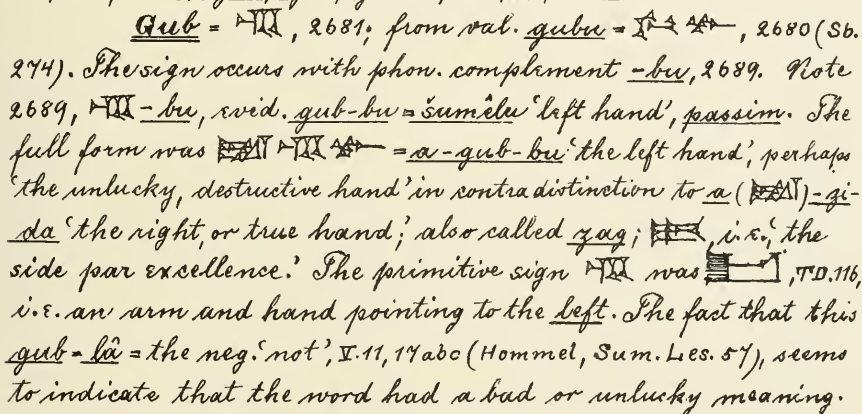 Gub = 𒆏, 2681; from val. gubu = 𒄖 𒁍, 2680 (Sb.
274). The sign occurs with phon. complement -bu, 2689. Note
2689, 𒆏 -bu, evid. gub-bu = šumêlu 'left hand', passim. The
full form was 𒀉 𒆏 𒁍 = a-gub-bu 'the left hand', perhaps
'the unlucky, destructive hand' in contradistinction to a (𒀉)-zi-
da 'the right, or true hand;' also called zag; 𒍠, i.e., 'the
side par excellence.' The primitive sign 𒆏 was , TD. 116,
i.e. an arm and hand pointing to the left. The fact that this
gub = lâ = the neg. 'not', V. 11, 17 abc (Hommel, Sum. Les. 57), seems
to indicate that the word had a bad or unlucky meaning.